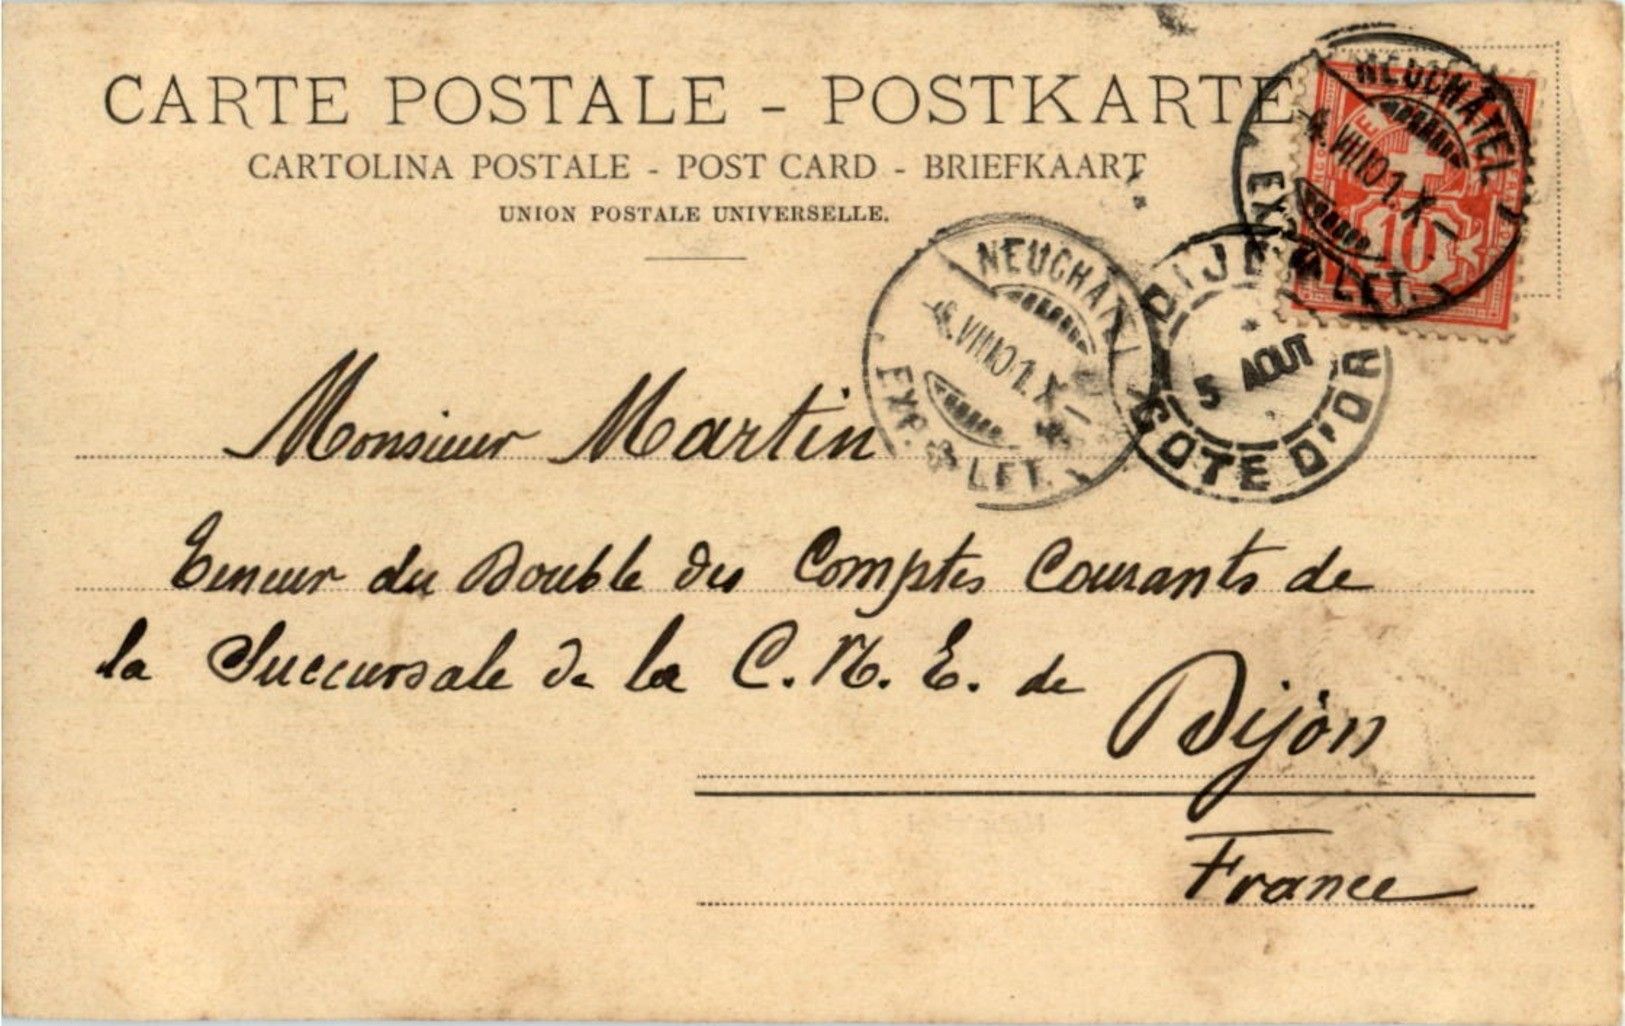 CARTE POSTALE - POSTKARTE
CARTOLINA POSTALE - POST CARD - BRIEFKAART
UNION POSTALE UNIVERSELLE.
NEUCHATEL
4.VIII.01.X-
EXP. LET.
10
NEUCHATEL
4.VIII.01.X-
EXP. LET.
DIJON
5 AOUT
COTE D'OR
Monsieur Martin
Teneur du Double des Comptes Courants de
la Succursale de la C. N. E. de
Dijon
France